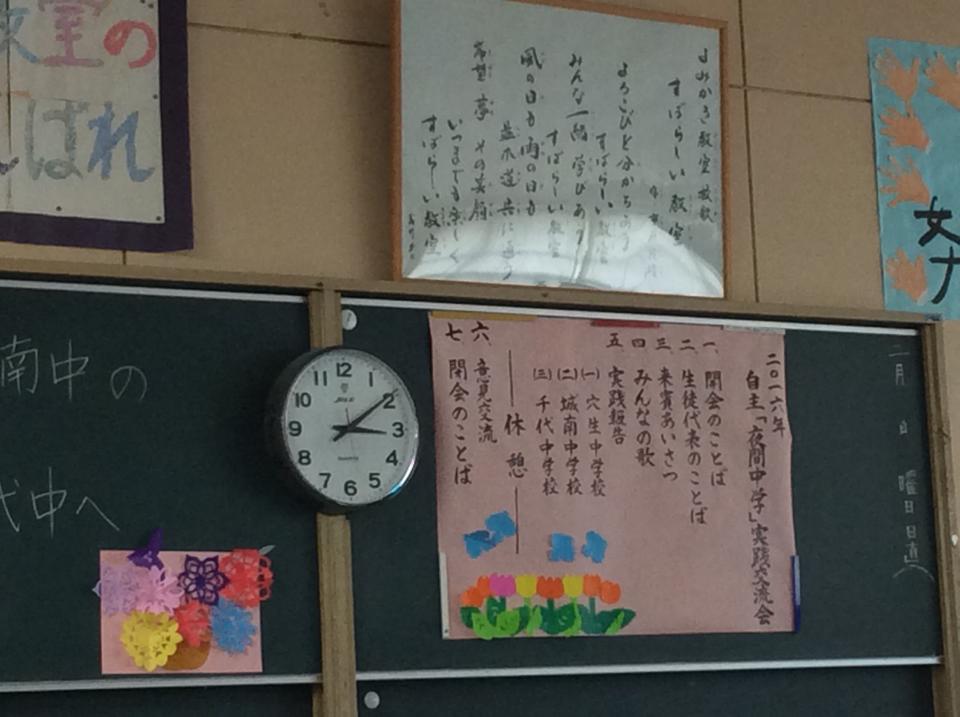 室の
ばれ
よみかき教室校歌
すばらしい教室
よろこびを分かちあう
すばらしい教室
みんな一緒学びあう
すばらしい教室
風の日も雨の日も
並木道共に通う
希望 夢 その笑顔
いつまでも楽しく
すばらしい教室
女
南中の
代中へ
12
1
2
3
4
5
6
7
8
9
10
11
二〇一六年
自主「夜間中学」実践交流会
一、開会のことば
二、生徒代表のことば
三、来賓あいさつ
四、みんなの歌
五、実践報告
(一)穴生中学校
(二)城南中学校
(三)千代中学校
休憩
六、意見交流
七、閉会のことば
月
日
曜日
日直